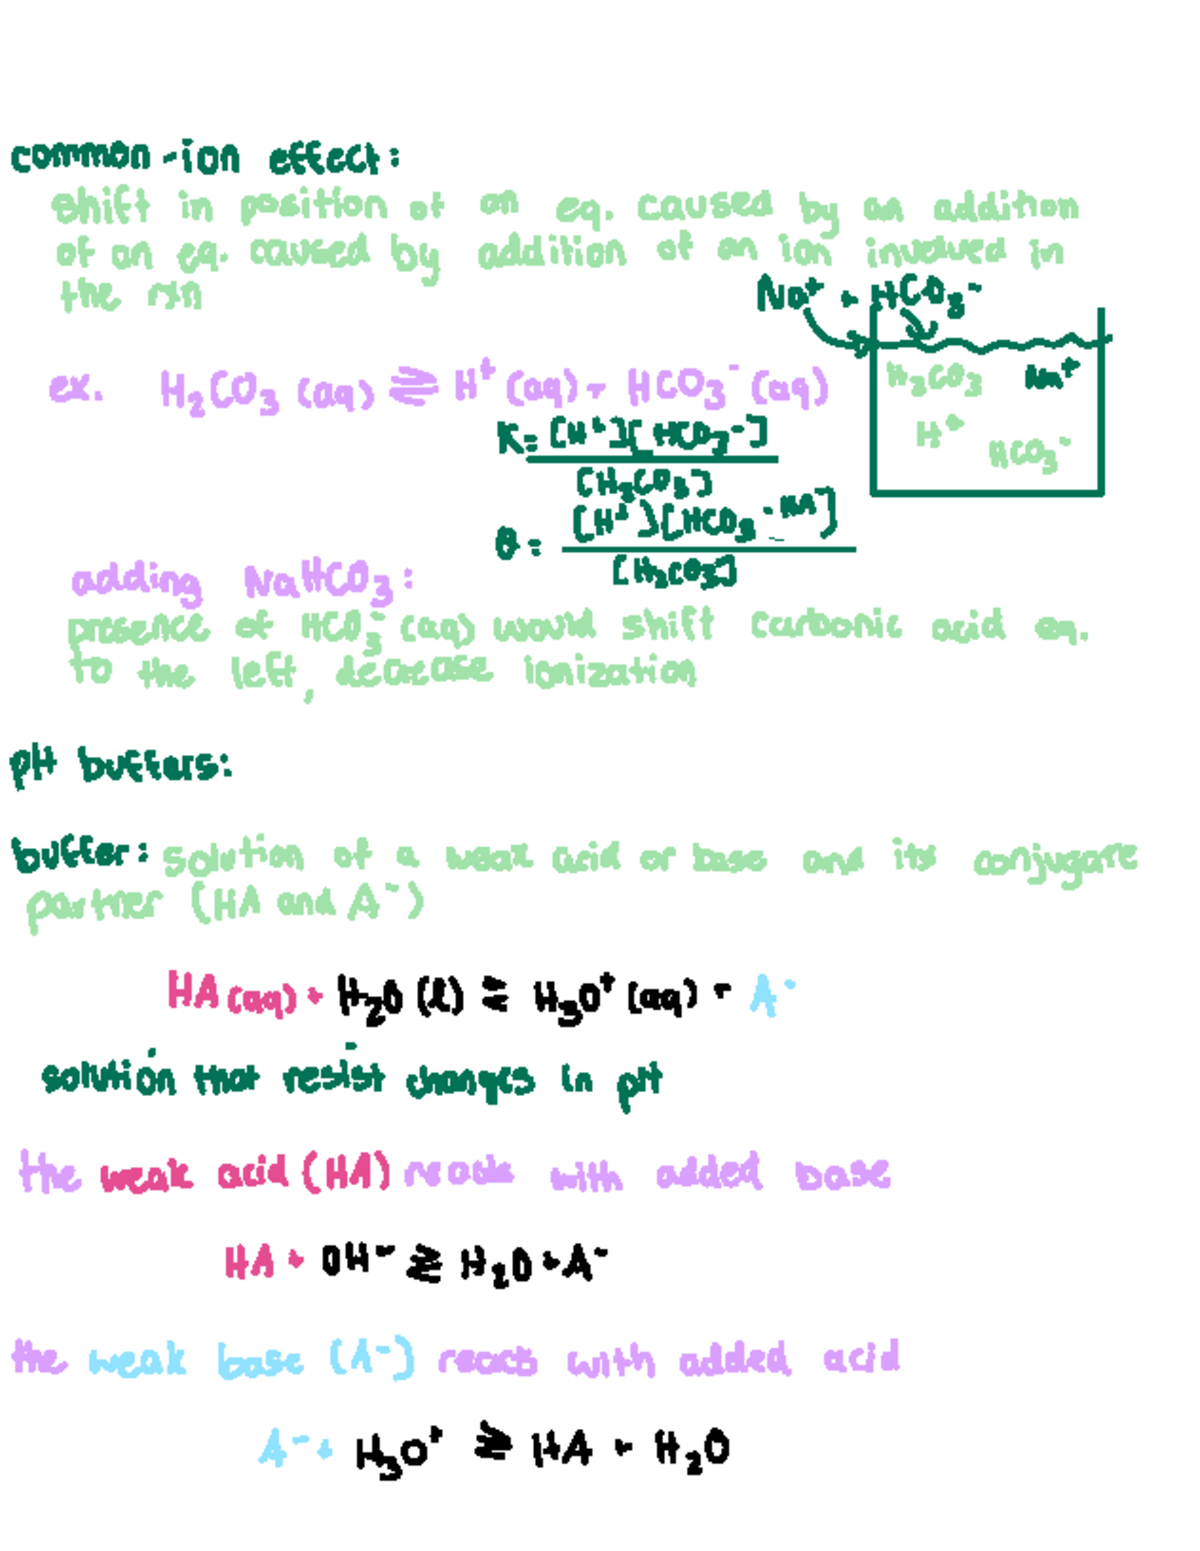 common-ion effect:
shift in position of an eq. caused by an addition
of an eq. caused by addition of an ion involved in
the rxn
Na⁺ + HCO₃⁻
ex. H₂CO₃ (aq) ⇌ H⁺ (aq) + HCO₃⁻ (aq)
H₂CO₃ Na⁺
H⁺
HCO₃⁻
K = [H⁺][HCO₃⁻]
[H₂CO₃]
Q = [H⁺][HCO₃⁻
[H₂CO₃]
adding NaHCO₃:
presence of HCO₃⁻ (aq) would shift carbonic acid eq.
to the left, decrease ionization
pH buffers:
buffer: solution of a weak acid or base and its conjugate
partner (HA and A⁻)
HA (aq) + H₂O (l) ⇌ H₃O⁺ (aq) + A⁻
solution that resist changes in pH
the weak acid (HA) reacts with added base
HA + OH⁻ ⇌ H₂O + A⁻
the weak base (A⁻) reacts with added acid
A⁻ + H₃O⁺ ⇌ HA + H₂O